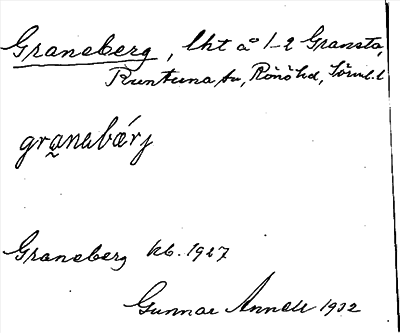 Graneberg, lht å 1-2 Gransta,
Runtuna sn, Rönö hd, Södml. l.
granebærj
Graneberg kb. 1927
Gunnar Annell 1932